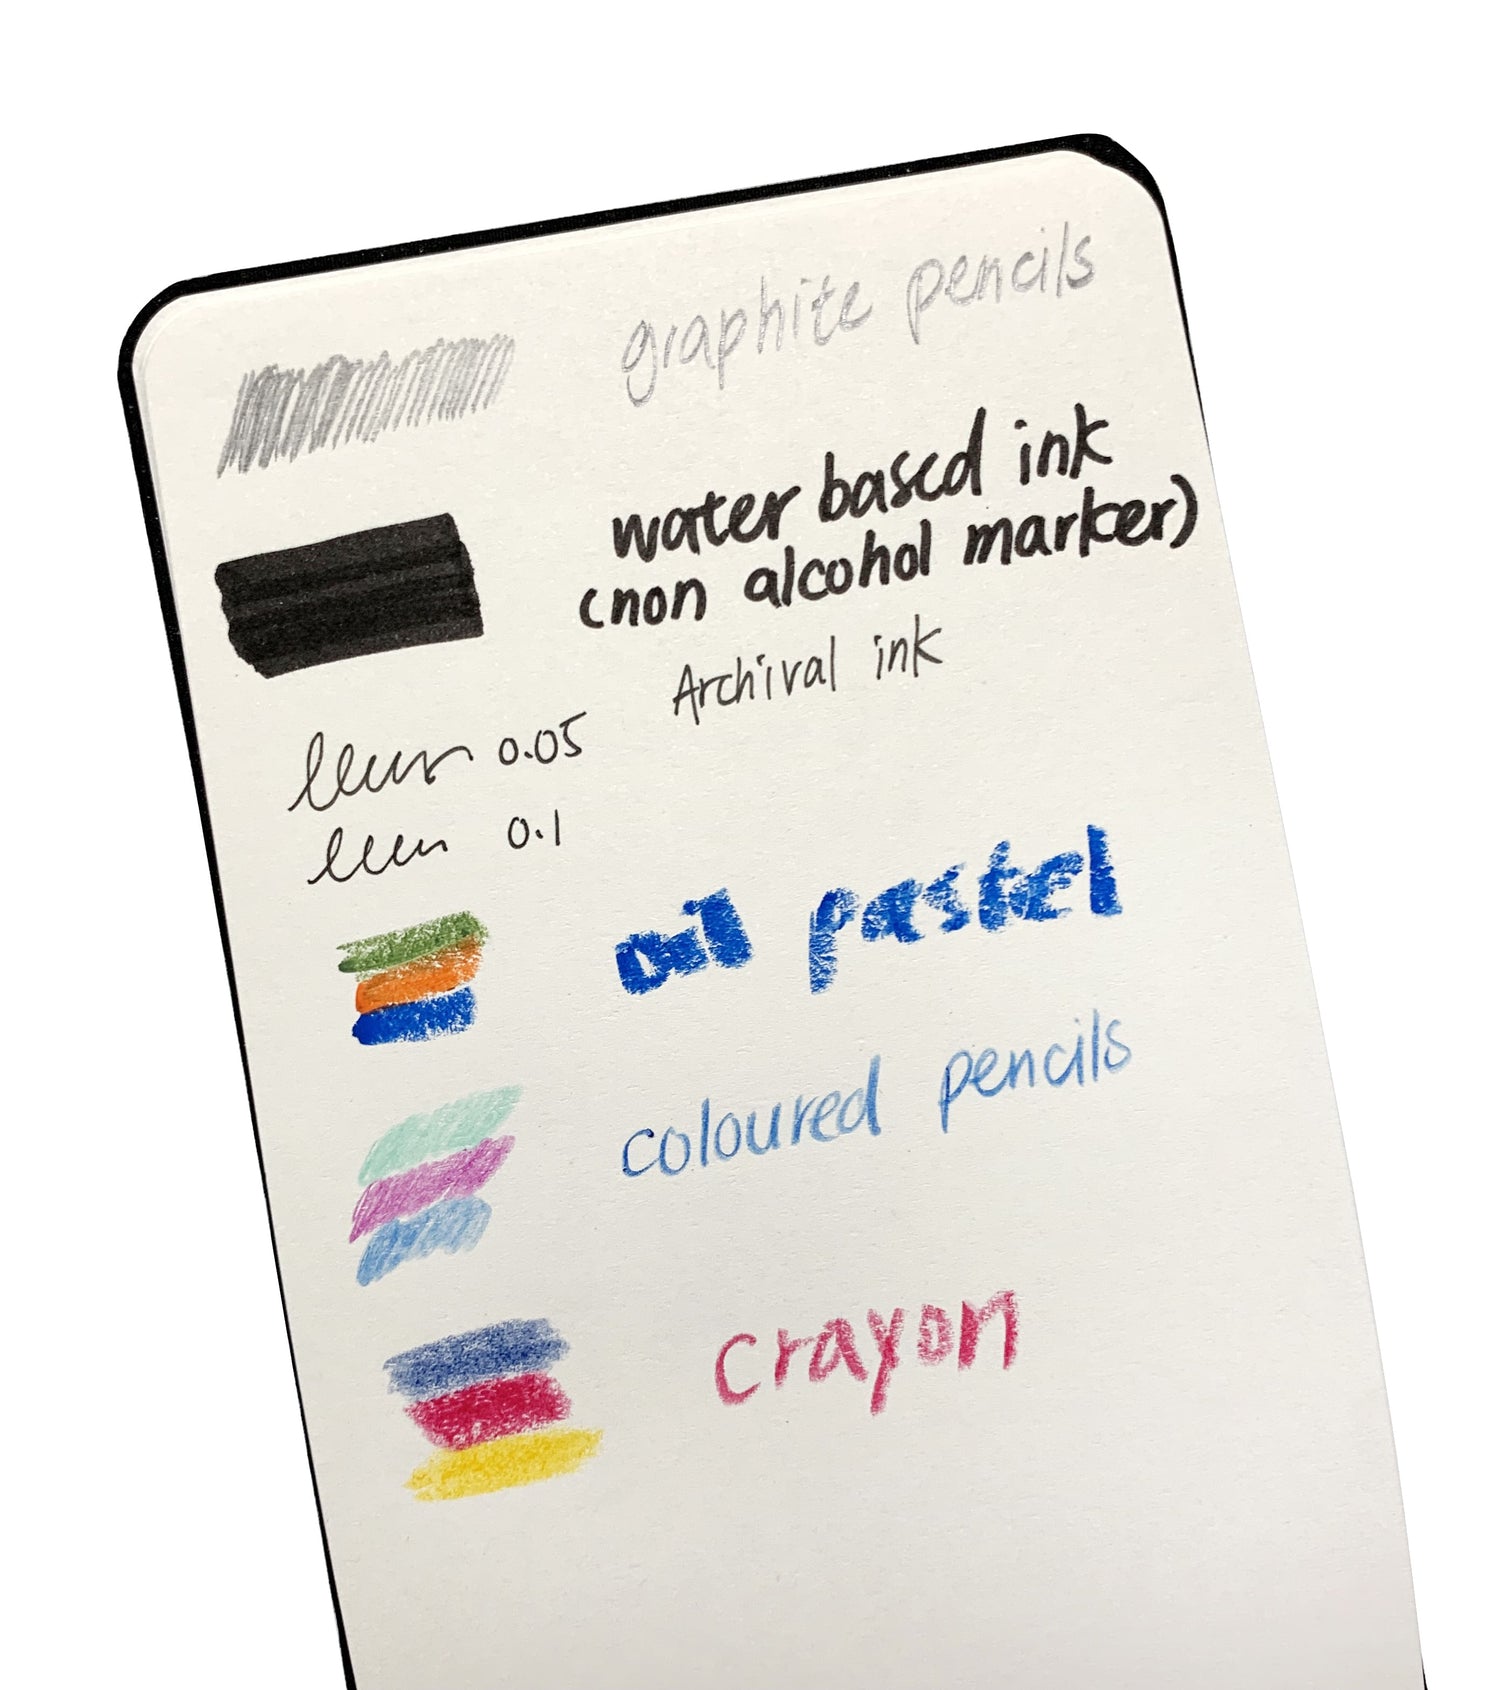 graphite pencils
water based ink
(non alcohol marker)
Archival ink
0.05
0.1
oil pastel
coloured pencils
crayon